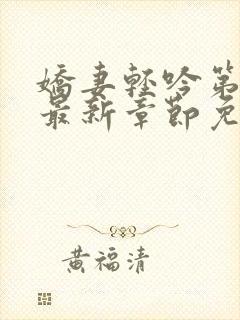 嬌妻輕吟第
最新章節免
黃福清